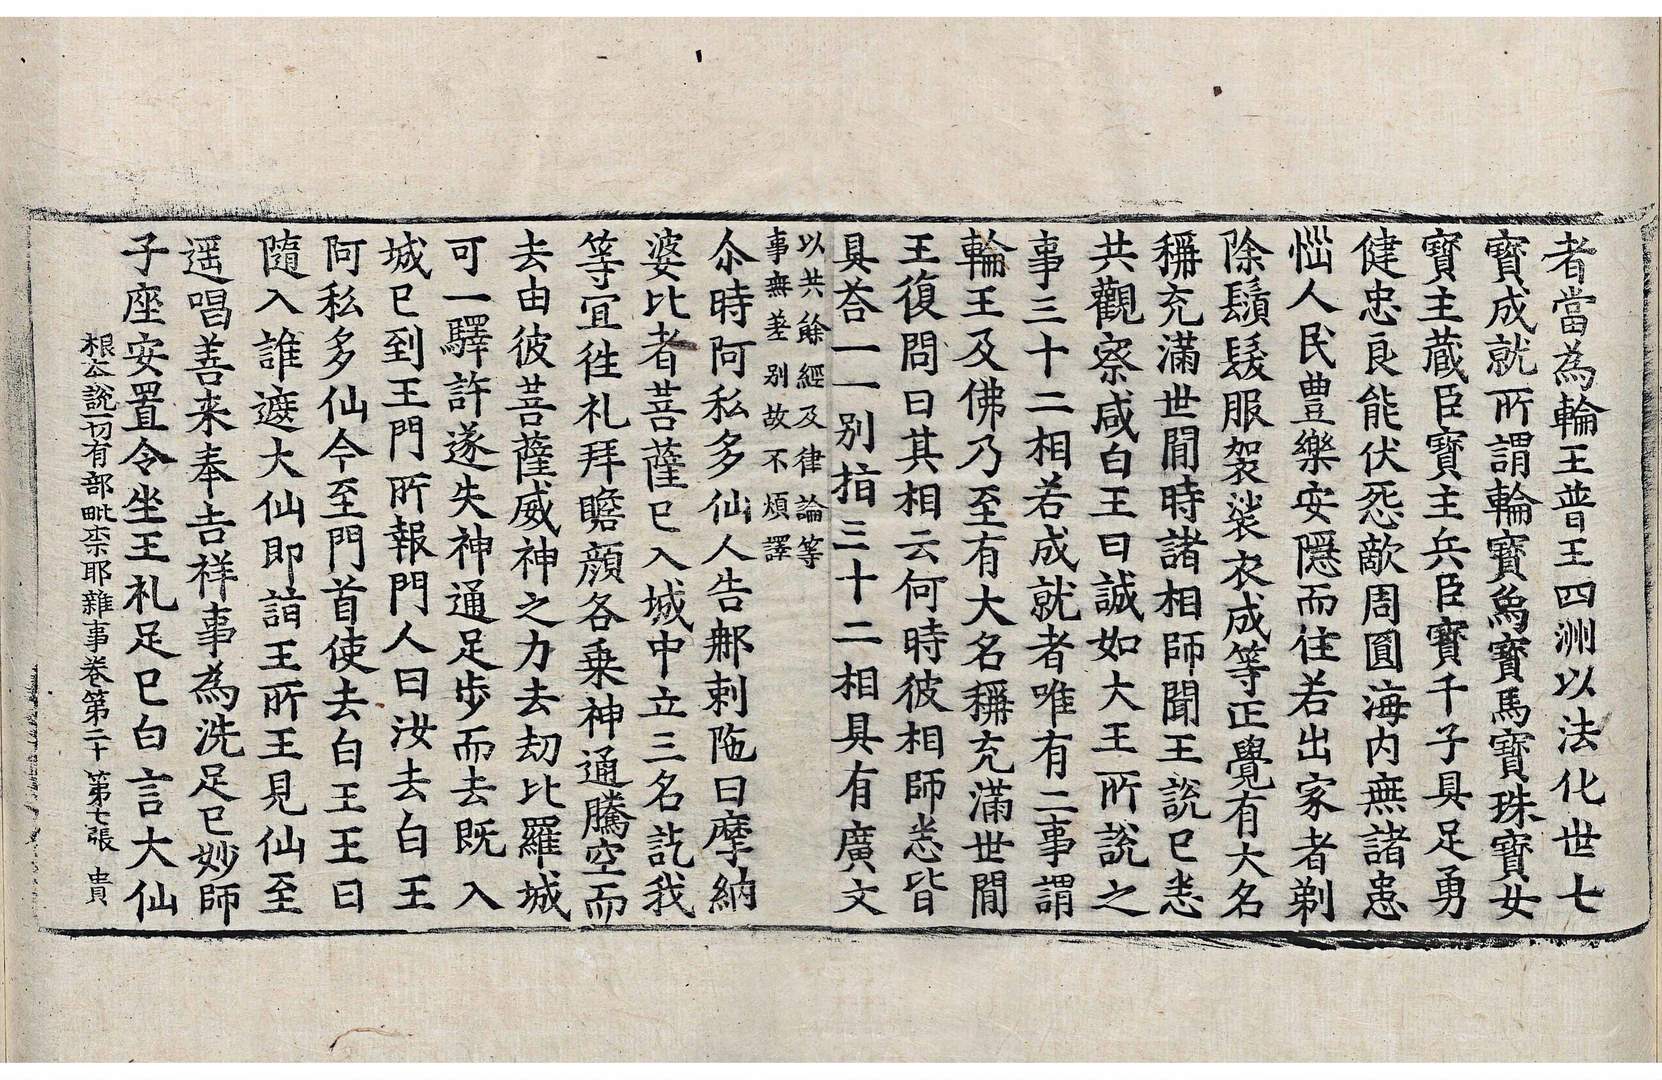 者當為輪王普王四洲以法化世七
寶成就所謂輪寶爲寶馬寶珠寶女
寶主藏臣寶主兵臣寶千子具足勇
健忠良能伏怨敵周圓海内無諸患
惱人民豊樂安隱而住若出家者剃
除鬚髮服袈裟衣成等正覺有大名
稱充滿世間時諸相師聞王說已悉
共觀察咸白王曰誠如大王所說之
事三十二相若成就者唯有二事謂
輪王及佛乃至有大名稱充滿世間
王復問曰其相云何時彼相師悉皆
具荅一一別指三十二相具有廣文
以共餘經及律論等
事無差別故不煩譯
尒時阿私多仙人告那剌陁曰摩納
婆比者菩薩已入城中立三名訖我
等宜徃礼拜瞻顔各乗神通騰空而
去由彼菩薩威神之力去劫比羅城
可一驛許遂失神通足步而去既入
城已到王門所報門人曰汝去白王
阿私多仙今至門首使去白王王曰
隨入誰遮大仙即詣王所王見仙至
遥唱善来奉吉祥事為洗足已妙師
子座安置令坐王礼足已白言大仙
根夲說一切有部毗柰耶雜事卷第二十 第七張 貴